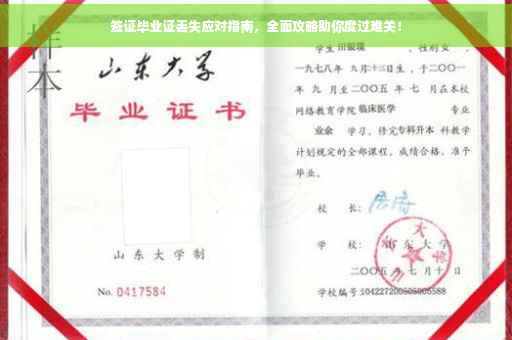 签证毕业证丢失应对指南，全面攻略助你度过难关！
样本
山东大学
毕业证书
山东大学制
No. 0417584
学生 田银瑞 ，性别 女 ，
一九七八年 九月十三日生，于二〇〇一
年 九 月至二〇〇五 年 七 月在本校
网络教育学院 临床医学 专业
业余 学习，修完 专科升本 科教学
计划规定的全部课程，成绩合格，准予
毕业。
校 长：
学 校：山东大学
二〇〇五年 七 月 十 日
学校编号：104227200505005588
山东大学